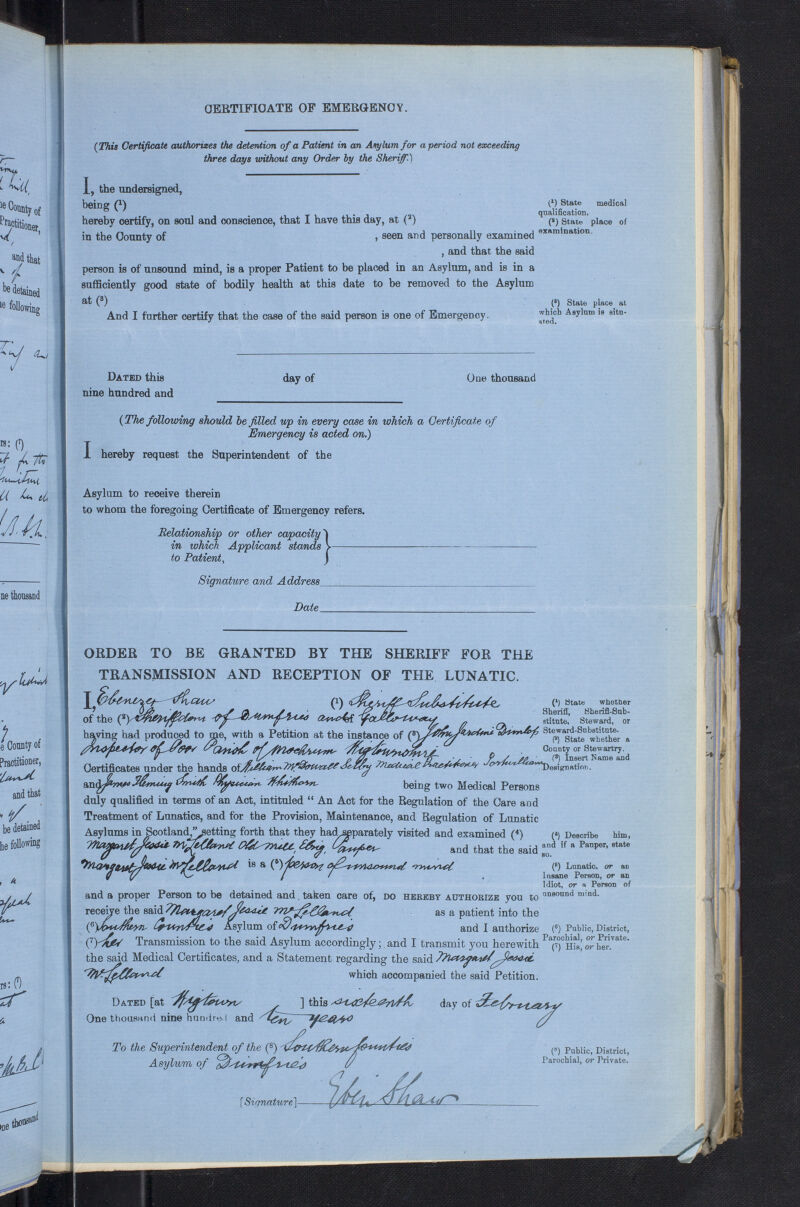 CERTIFICATE OF EMERGENCY.
(This Certificate authorizes the detention of a Patient in an Asylum for a period not exceeding
three days without any Order by the Sheriff.)
I, the undersigned,
being (¹)
hereby certify, on soul and conscience, that I have this day, at (²)
in the County of , seen and personally examined
, and that the said
person is of unsound mind, is a proper Patient to be placed in an Asylum, and is in a
sufficiently good state of bodily health at this date to be removed to the Asylum
at (³)
And I further certify that the case of the said person is one of Emergency.
(¹) State medical
qualification.
(²) State place of
examination.
(³) State place at
which Asylum is situ-
ated.
DATED this day of One thousand
nine hundred and
(The following should be filled up in every case in which a Certificate of
Emergency is acted on.)
I hereby request the Superintendent of the
Asylum to receive therein
to whom the foregoing Certificate of Emergency refers.
Relationship or other capacity
in which Applicant stands
to Patient,
Signature and Address
Date
ORDER TO BE GRANTED BY THE SHERIFF FOR THE
TRANSMISSION AND RECEPTION OF THE LUNATIC.
I, Ebenezer Shaw (¹) Sheriff Substitute
of the (²) Sheriffdom of Dumfries and Galloway
having had produced to me, with a Petition at the instance of (³) John Jardine Dunlop
Inspector of Poor Parish of Mochrum Wigtownshire
Certificates under the hands of William McDowall Selby Medical Practitioner Portwilliam
and James Fleming Smith Physician Whithorn being two Medical Persons
duly qualified in terms of an Act, intituled "An Act for the Regulation of the Care and
Treatment of Lunatics, and for the Provision, Maintenance, and Regulation of Lunatic
Asylums in Scotland," setting forth that they had separately visited and examined (⁴)
Margaret Jessie McLelland Old Mill, Elrig, Pauper and that the said
Margaret Jessie McLelland is a (⁵) person of unsound mind
and a proper Person to be detained and taken care of, DO HEREBY AUTHORIZE you to
receive the said Margaret Jessie McLelland as a patient into the
(⁶) Southern Counties Asylum of Dumfries and I authorize
(⁷) her Transmission to the said Asylum accordingly; and I transmit you herewith
the said Medical Certificates, and a Statement regarding the said Margaret Jessie
McLelland which accompanied the said Petition.
(¹) State whether
Sheriff, Sheriff-Sub-
stitute, Steward, or
Steward-Substitute.
(²) State whether a
County or Stewartry.
(³) Insert Name and
Designation.
(⁴) Describe him,
and if a Pauper, state
so.
(⁵) Lunatic, or an
Insane Person, or an
Idiot, or a Person of
unsound mind.
(⁶) Public, District,
Parochial, or Private.
(⁷) His, or her.
DATED [at Wigtown ] this sixteenth day of February
One thousand nine hundred and ten years
To the Superintendent of the (⁸) Southern Counties
Asylum of Dumfries
(⁸) Public, District,
Parochial, or Private.
[Signature] Eben Shaw